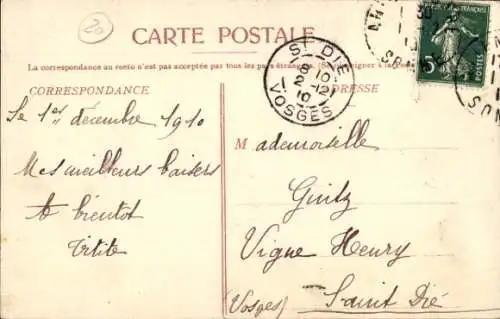 20
CARTE POSTALE
La correspondance au recto n'est pas acceptée par tous les pays étrangers. (Se renseigner à la
CORRESPONDANCE
ADRESSE
ST DIÉ
8 10
2-12
10
VOSGES
5
POSTES
Le 1er décembre 1910
Mes meilleurs baisers
à bientôt
Titite
Mademoiselle
Guitz
Vigne Henry
Saint Dié
(Vosges)